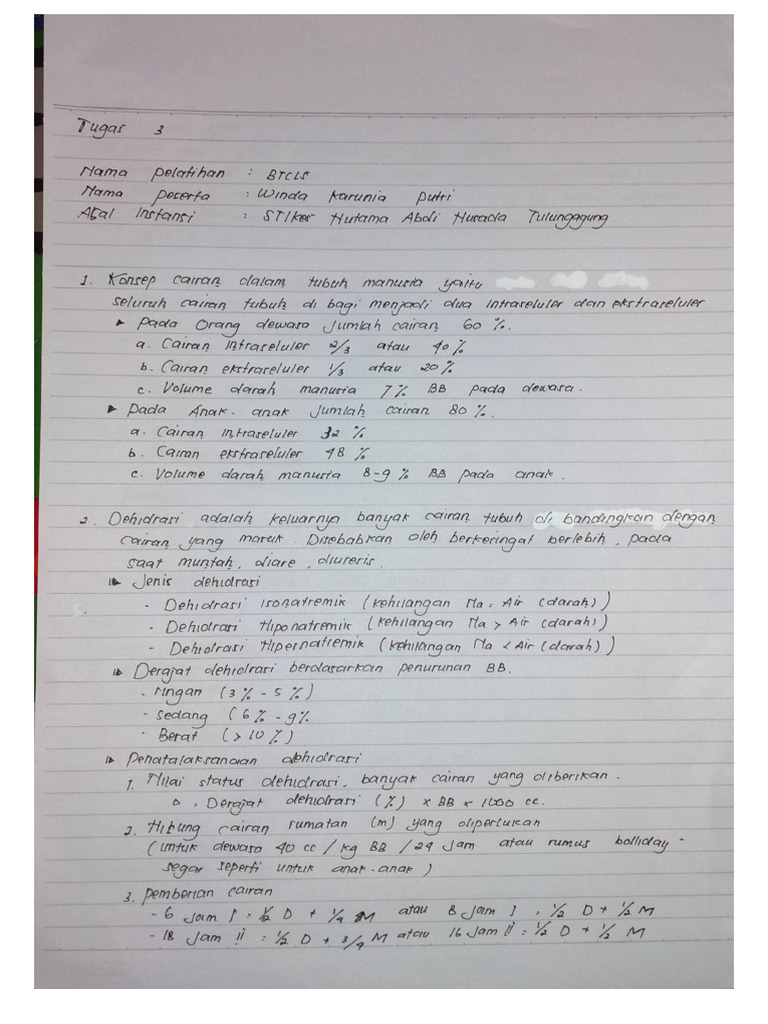 Tugas 3
Nama Pelatihan : BTCLS
Nama Peserta : Winda Karunia Putri
Asal Instansi : STIkes Hutama Abdi Husada Tulungagung
1. Konsep cairan dalam tubuh manusia yaitu
seluruh cairan tubuh di bagi menjadi dua intraseluler dan ekstraseluler
► Pada Orang dewasa Jumlah cairan 60 %.
a. Cairan Intraseluler 2/3 atau 40 %
b. Cairan ekstraseluler 1/3 atau 20 %
c. Volume darah manusia 7 % BB pada dewasa.
► Pada Anak-anak Jumlah cairan 80 %.
a. Cairan Intraseluler 32 %
b. Cairan ekstraseluler 48 %
c. Volume darah manusia 8-9 % BB pada anak.
2. Dehidrasi adalah keluarnya banyak cairan tubuh di bandingkan dengan
cairan yang masuk. Disebabkan oleh berkeringat berlebih, pada
saat muntah, diare, diuresis.
► Jenis dehidrasi
- Dehidrasi Isonatremik (Kehilangan Na = Air (darah))
- Dehidrasi Hiponatremik (Kehilangan Na > Air (darah))
- Dehidrasi Hipernatremik (Kehilangan Na < Air (darah))
► Derajat dehidrasi berdasarkan penurunan BB.
- ringan (3 % - 5 %)
- sedang (6 % - 9 %
- Berat (> 10 %)
► Penatalaksanaan dehidrasi
1. Nilai status dehidrasi, banyak cairan yang diberikan.
D = Derajat dehidrasi (%) x BB x 1000 cc.
2. Hitung cairan rumatan (m) yang diperlukan
(untuk dewasa 40 cc / kg BB / 24 Jam atau rumus holliday -
segar seperti untuk anak-anak)
3. Pemberian cairan
- 6 Jam I : 1/2 D + 1/4 M atau 8 Jam I : 1/2 D + 1/2 M
- 18 Jam II : 1/2 D + 3/4 M atau 16 Jam II : 1/2 D + 1/2 M